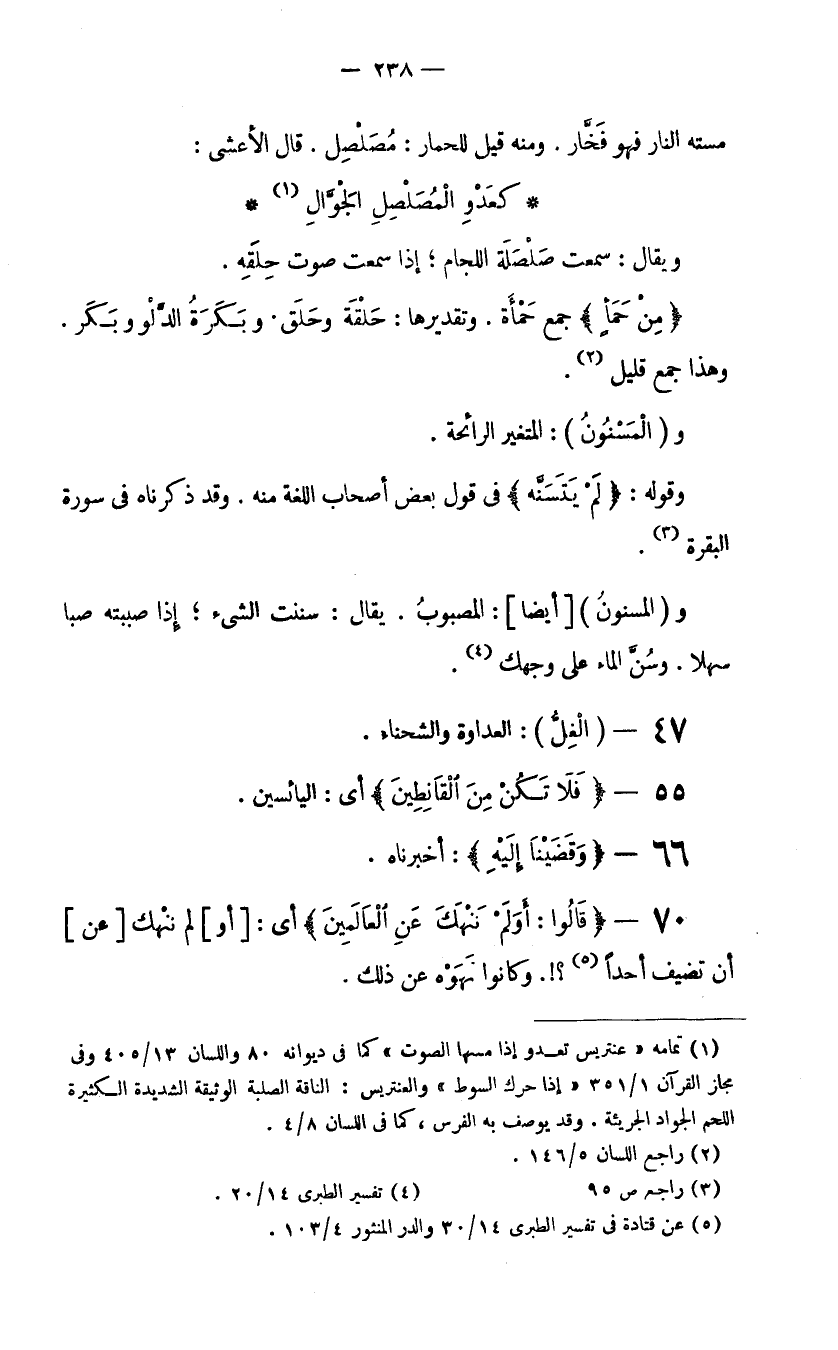 — ٢٣٨ —
مسته النار فهو فَخَّار . ومنه قيل للحمار : مُصَلْصِل . قال الأعشى :
* كَعَدْوِ الْمُصَلْصِلِ الجْوَّالِ (١) *
ويقال : سمعت صَلْصَلَة اللجام ؛ إذا سمعت صوت حِلَقِه .
﴿ مِنْ حَمَأٍ ﴾ جمع حَمْأَة . وتقديرها : حَلْقَة وحَلَق . وبَكَرَةُ الدَّلْو وبَكَر .
وهذا جمع قليل (٢) .
و ( الْمَسْنُونُ ) : المتغير الرائحة .
وقوله : ﴿ لَمْ يَتَسَنَّه ﴾ فى قول بعض أصحاب اللغة منه . وقد ذكرناه فى سورة
البقرة (٣) .
و ( المسنونُ ) [ أيضا ] : المصبوبُ . يقال : سننت الشىء ؛ إذا صببته صبا
سهلا . وسُنَّ الماء على وجهك (٤) .
٤٧ – ( الْغِلُّ ) : العداوة والشحناء .
٥٥ – ﴿ فَلَا تَكُنْ مِنَ ٱلْقَانِطِينَ ﴾ أى : اليائسين .
٦٦ – ﴿ وَقَضَيْنَا إِلَيْهِ ﴾ : أخبرناه .
٧٠ – ﴿ قَالُوا : أَوَلَمْ نَنْهَكَ عَنِ ٱلْعَالَمِينَ ﴾ أى : [ أو ] لم ننْهك [ عن ]
أن تضيف أحداً (٥) ؟!. وكانوا نَهَوْه عن ذلك .
(١) تمامه « عنتريس تعدو إذا مسها الصوت » كما فى ديوانه ٨٠ واللسان ٤٠٥/١٣ وفى
مجاز القرآن ٣٥١/١ « إذا حرك السوط » والعنتريس : الناقة الصلبة الوثيقة الشديدة الكثيرة
اللحم الجواد الجريئة . وقد يوصف به الفرس ، كما فى اللسان ٤/٨ .
(٢) راجع اللسان ١٤٦/٥ .
(٣) راجع ص ٩٥ (٤) تفسير الطبرى ٢٠/١٤ .
(٥) عن قتادة فى تفسير الطبرى ٣٠/١٤ والدر المنثور ١٠٣/٤ .